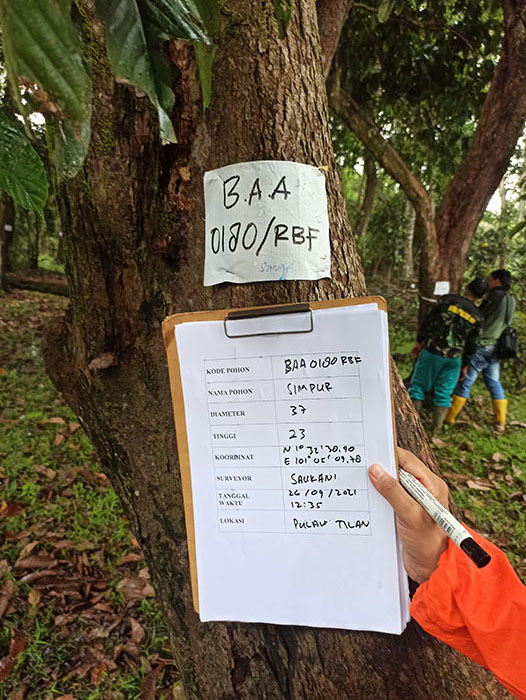 B.A.A
0180/RBF
KODE POHON BAA 0180 RBF
NAMA POHON SIMPUR
DIAMETER 37
TINGGI 23
KOORDINAT N 1° 32' 30.90
E 101° 05' 09.78
SURVEYOR SAUKANI
TANGGAL 26/09/2021
WAKTU 12:35
LOKASI PULAU TILAN